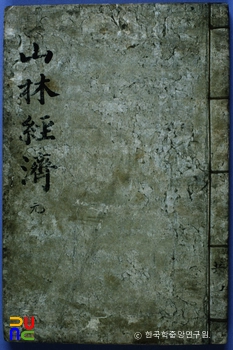 山林經濟
元
ⓒ 한국학중앙연구원